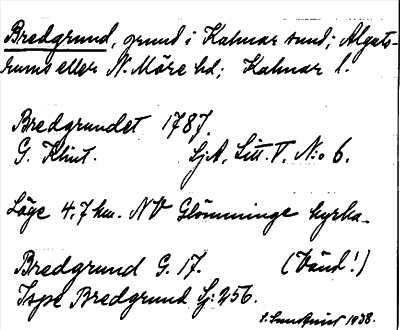 Bredgrund, grund i Kalmar sund; Alguts-
rums eller N. Möre hd; Kalmar l.
Bredgrundet 1787.
G. Klint. SjA, Litt. V. N:o 6.
Läge 4.7 km. NV Glömminge kyrka.
Bredgrund G. 17. (Vänd!)
Ispe Bredgrund Sj: 256.
S. Sundquist 1938.